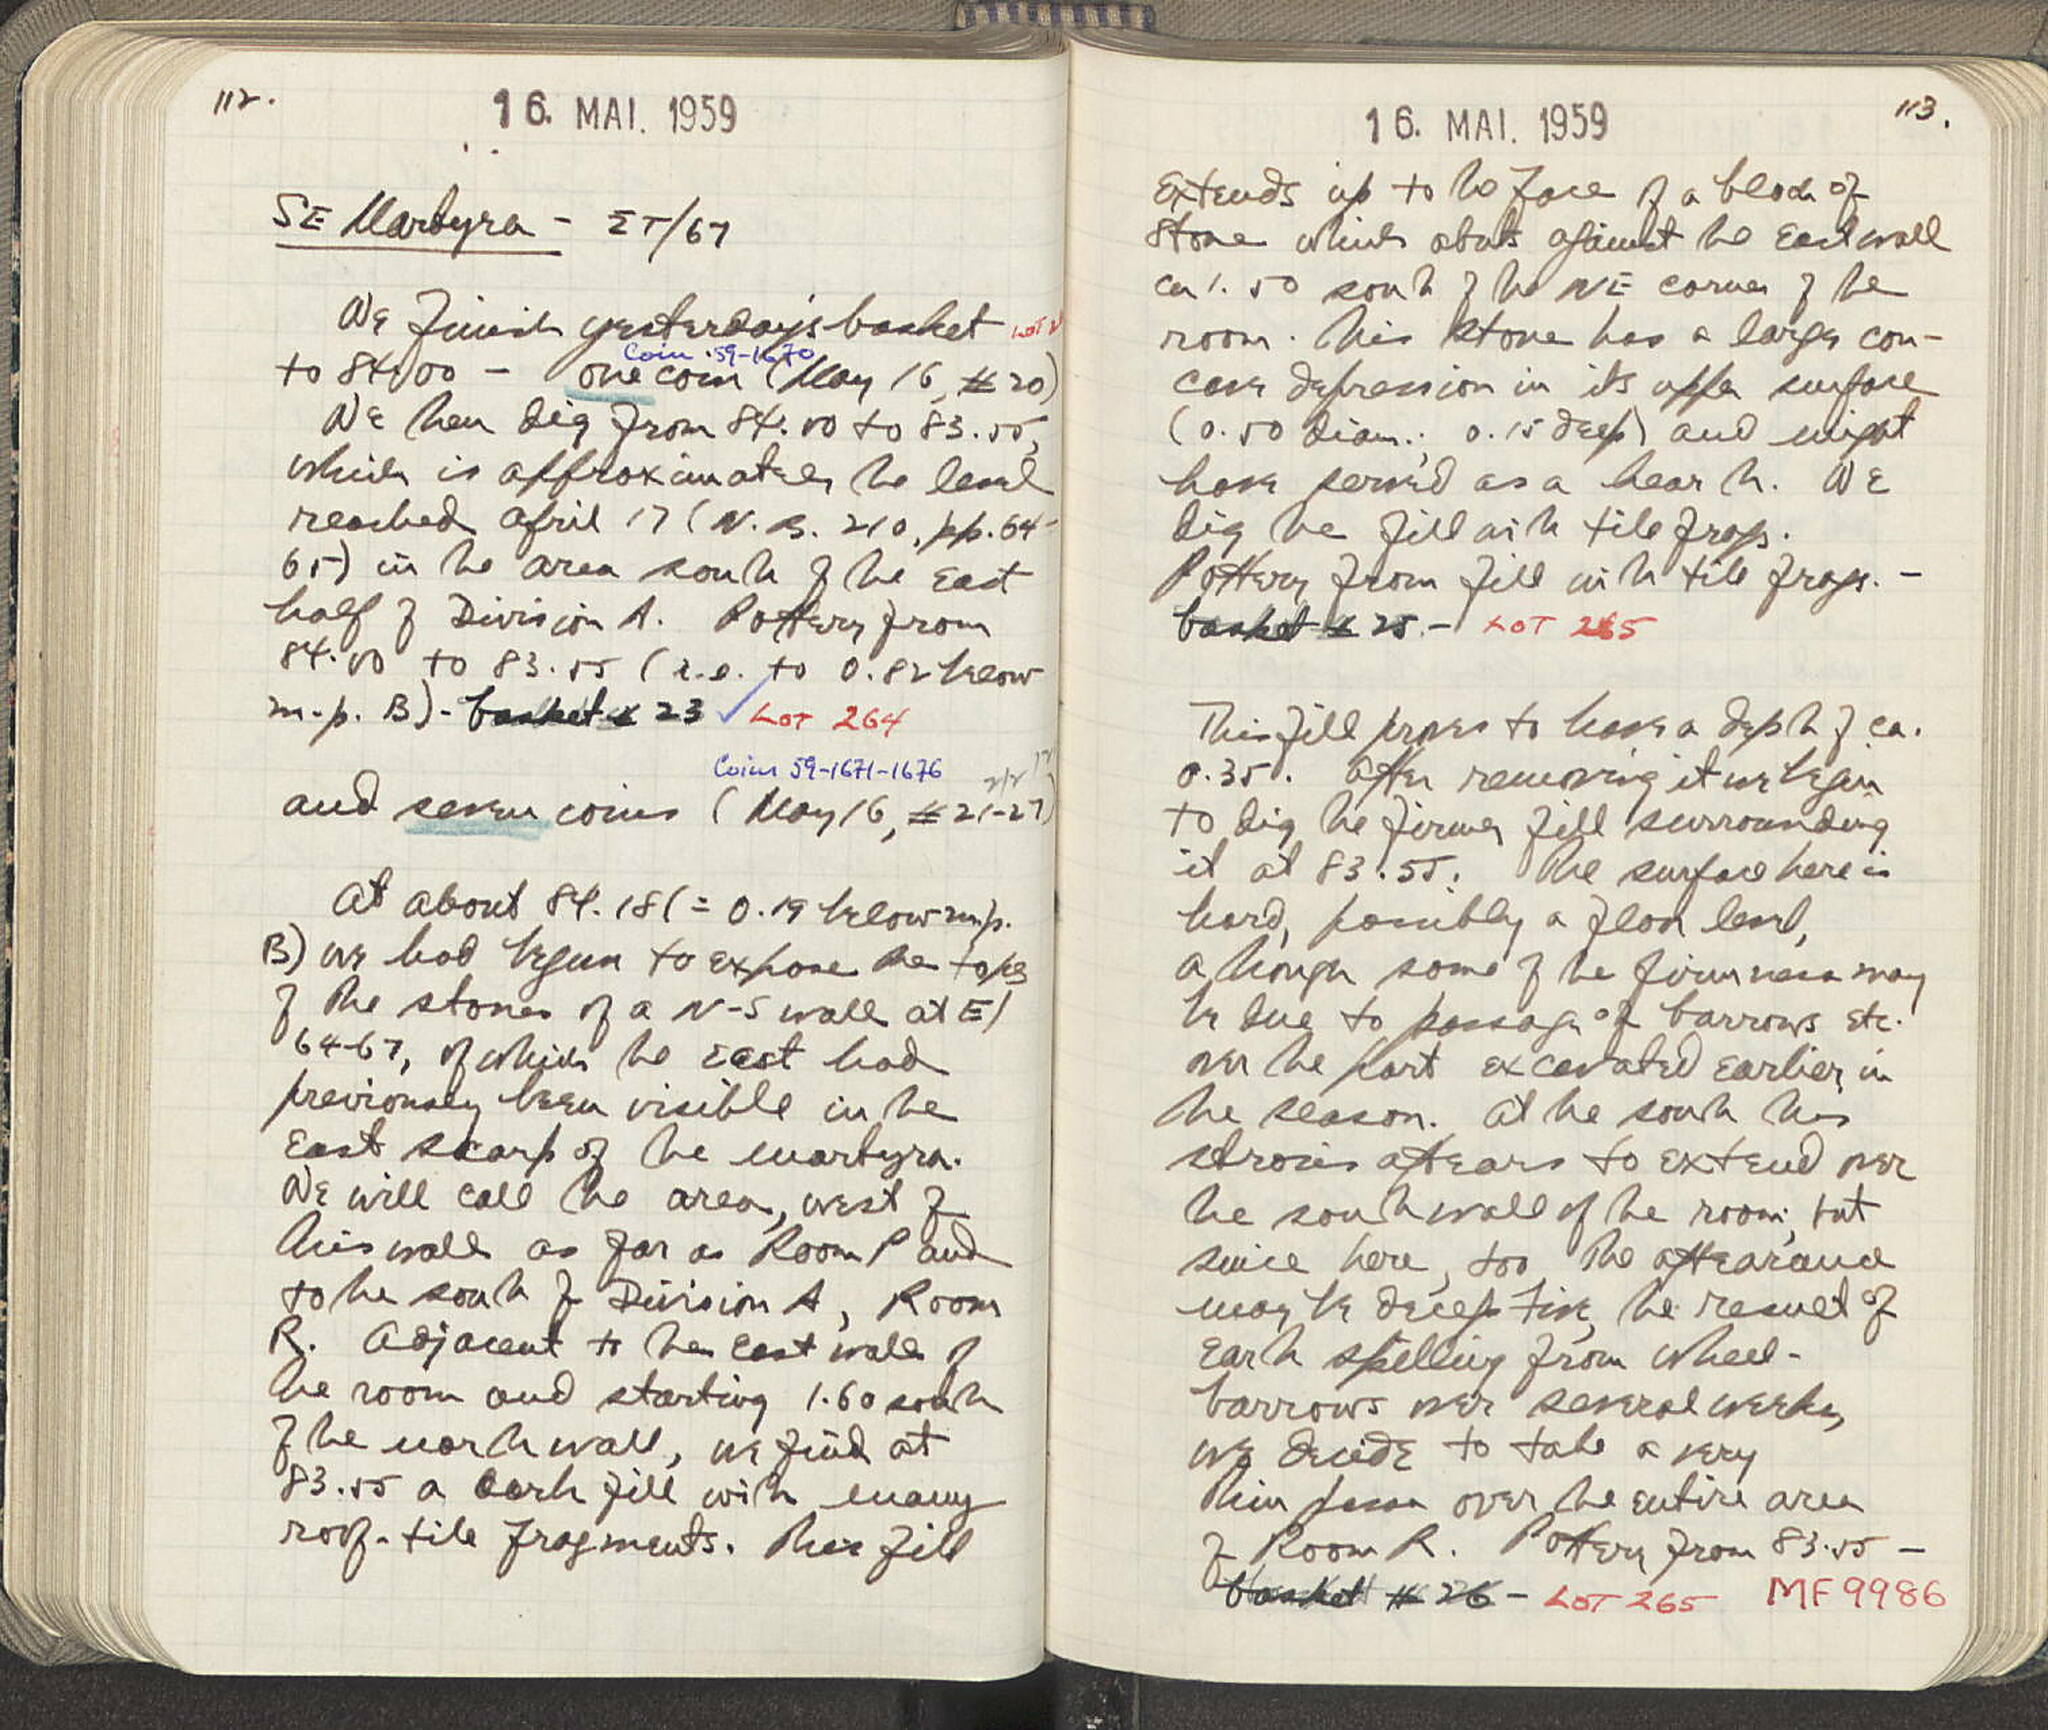 112.
16. MAI. 1959
SE Martyra - ΣT/67
We finish yesterday's basket LOT
Coin 59-1670
to 84.00 - one coin (May 16, #20)
We then dig from 84.00 to 83.55,
which is approximately the level
reached April 17 (N.B. 210, pp. 64-
65) in the area south of the East
half of Division A. Pottery from
84.00 to 83.55 (i.e. to 0.82 below
m.p. B) - basket # 23 ✓ LOT 264
Coins 59-1671-1676
and seven coins (May 16, #21-27)
At about 84.18 (= 0.19 below m.p.
B) we had begun to expose the tops
of the stones of a N-S wall at E/
64-67, of which the East had
previously been visible in the
East scarp of the martyra.
We will call the area, west of
this wall as far as Room P and
to the south of Division A, Room
R. Adjacent to the East wall of
the room and starting 1.60 south
of the north wall, we find at
83.55 a earth fill with many
roof-tile fragments. This fill
113.
16. MAI. 1959
Extends up to the face of a block of
stone which abuts against the East wall
ca 1.50 south of the NE corner of the
room. This stone has a large con-
cave depression in its upper surface
(0.50 diam.; 0.15 deep) and might
have served as a hearth. We
dig the fill with tile frags.
Pottery from fill with tile frags. -
basket # 25. - LOT 265
This fill proves to have a depth of ca.
0.35. After removing it we begin
to dig the firmer fill surrounding
it at 83.55. The surface here is
hard, possibly a floor level,
although some of the firmness may
be due to passage of barrows etc.
over the part excavated earlier in
the season. At the south this
strosis appears to extend over
the south wall of the room, but
since here, too the appearance
may be deceptive, the result of
Earth spilling from wheel-
barrows over several weeks,
we decide to take a very
thin pass over the entire area
of Room R. Pottery from 83.55 -
basket # 26 - LOT 265 MF 9986